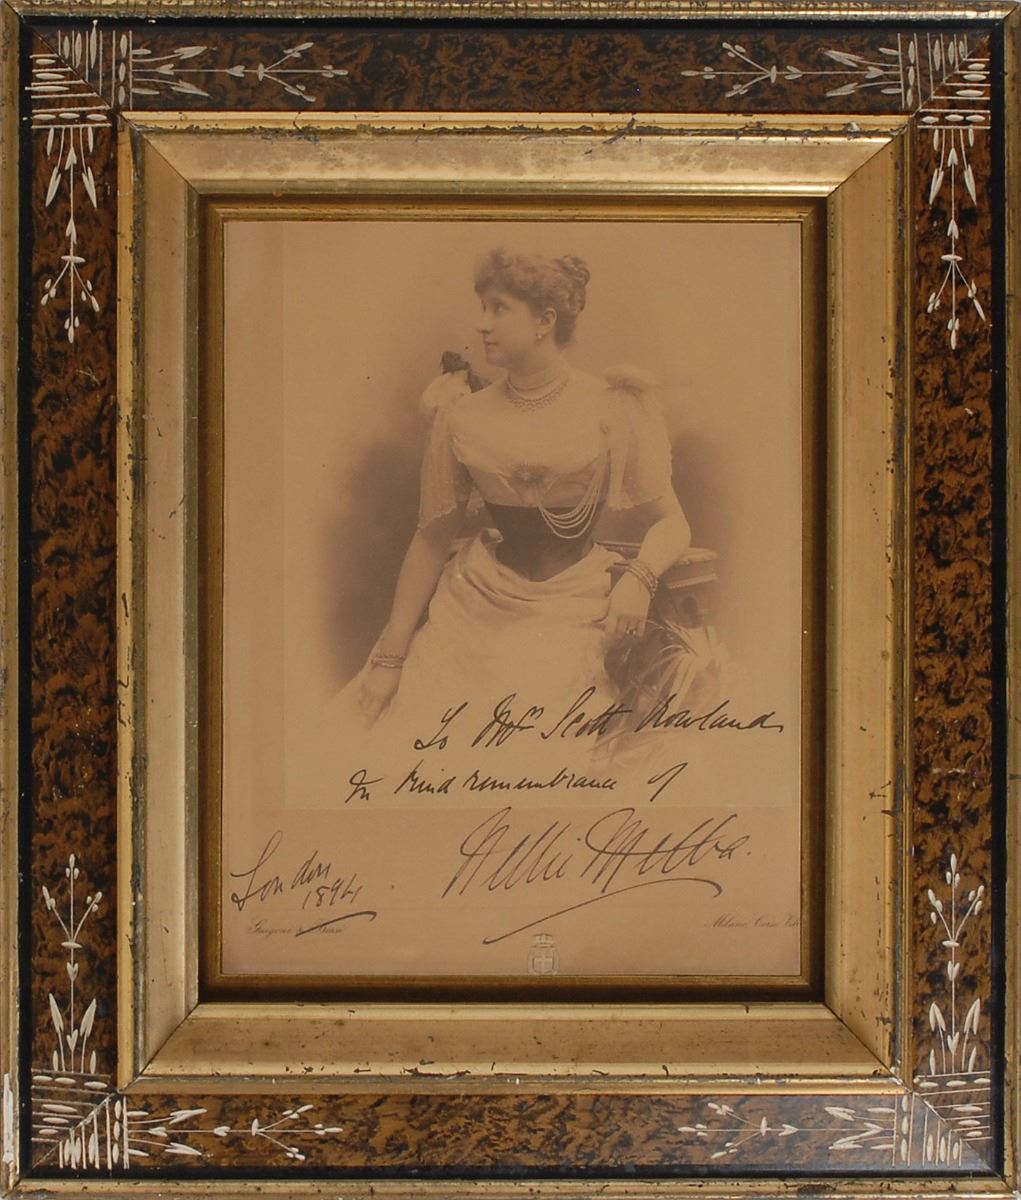 To Mrs Scott Rowland
In kind remembrance of
Nellie Melba.
London
1894
Milano, Corso V.E